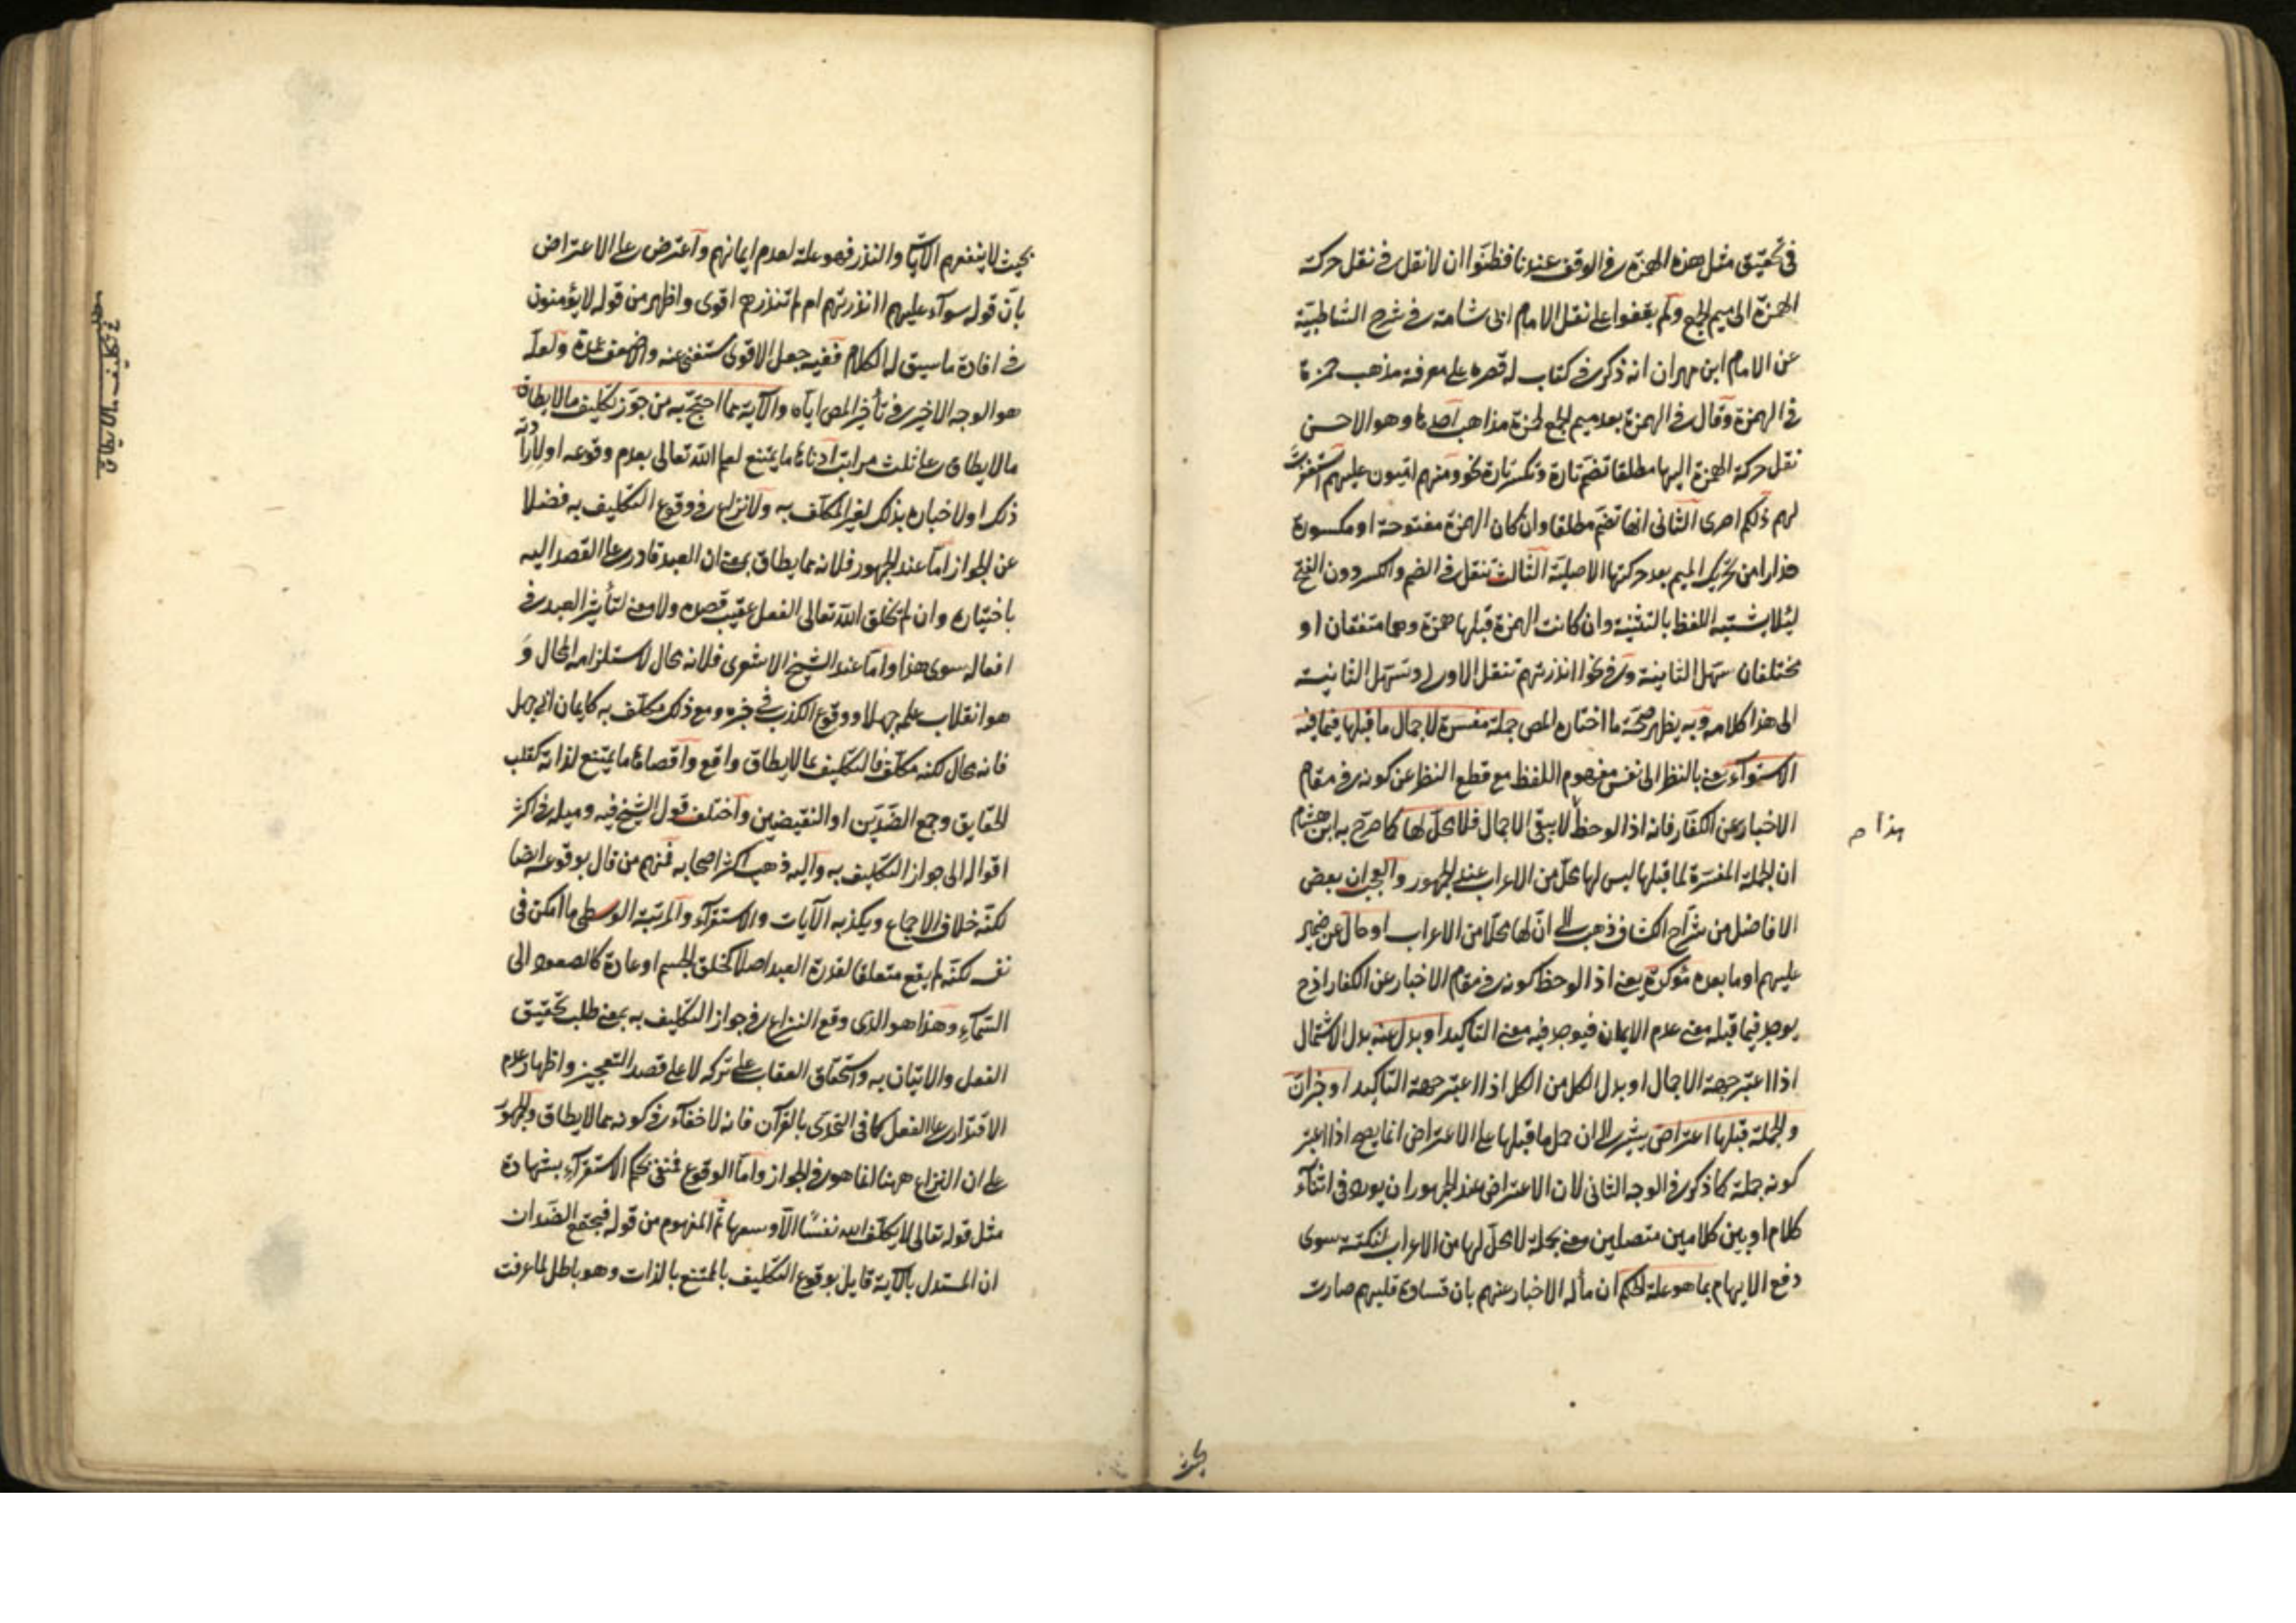 فى تحقيق مثل هذه الهمزة فى الوقف عندنا فظنوا ان لا نقل فى نقل حركة
الهمزة الى ميم الجمع ولم يقفوا على نقل الامام ابى شامة فى شرح الشاطبية
عن الامام ابن مهران انه ذكر فى كتاب له قصره على معرفة مذهب حمزة
فى الهمزة وقال فى الهمزة بعد ميم الجمع لحمزة مذاهب احدها وهو الاحسن
نقل حركة الهمزة اليها مطلقا تضم تارة وتكسر تارة نحو ومنهم اميون عليهم استغفرت
لهم ذلكم اصرى الثانى انها تضم مطلقا وان كان الهمزة مفتوحة او مكسورة
حذارا من تحريك الميم بعد حركتها الاصلية الثالث تنقل فى الضم والكسر دون الفتح
لئلا يشتبه اللفظ بالتثنية وان كانت الهمزة قبلها همزة وهما متفقان او
مختلفان سهل الثانية وفى نحو اانذرتهم تنقل الاولى وتسهل الثانية
الى هذا كلامه وبه يظهر صحة ما اختاره المص جملة مفسرة لاجمال ما قبلها فيما فيه
الاستواء يعنى بالنظر الى نفس مفهوم اللفظ مع قطع النظر عن كونه فى مقام
الاخبار عن الكفار فانه اذا لوحظ لا يبقى الاجمال فلا محل لها كما صرح به ابن هشام
هذا م
ان الجملة المفسرة لما قبلها ليس لها محل من الاعراب عند الجمهور والعجب ان بعض
الافاضل من شراح الكشاف ذهب الى ان لها محلا من الاعراب او حال عن ضمير
عليهم او ما بعده مؤكدة يعنى اذا لوحظ كونه فى مقام الاخبار عن الكفار اذ ح
يوجد فيما قبله معنى عدم الايمان فيوجد فيه معنى التاكيد او بدل عنه بدل الاشتمال
اذا اعتبر جهة الاجمال او بدل الكل من الكل اذا اعتبر جهة التاكيد او خبر ان
والجملة قبلها اعتراض يشير الى ان حمل ما قبلها على الاعتراض انما يصح اذا اعتبر
كونه جملة كما ذكر فى الوجه الثانى لان الاعتراض عند الجمهور ان يورد فى اثناء
كلام او بين كلامين متصلين معنى بجملة لا محل لها من الاعراب لنكتة سوى
دفع الايهام بما هو علة الحكم ان مأله الاخبار عنهم بان قساوة قلبهم صارت
بحيث
بحيث لا ينفعهم الآيات والنذر فهو علة لعدم ايمانهم واعترض على الاعتراض
بان قوله سوآء عليهم اانذرتهم ام لم تنذرهم اقوى واظهر من قوله لا يؤمنون
فى افادة ما سيق له الكلام ففيه جعل الاقوى مستغنى عنه والاضعف عمدة ولعله
هو الوجه الاخير فى تأخير المص اياه والآية مما احتج به من جوز تكليف ما لا يطاق
ما لا يطاق على ثلث مراتب ادناها ما يمتنع لعلم الله تعالى بعدم وقوعه او لارادته
ذلك او لاخباره بذلك لغير المكلف به ولا نزاع فى وقوع التكليف به فضلا
عن الجواز اما عند الجمهور فلانه مما يطاق بمعنى ان العبد قادر على القصد اليه
باختياره وان لم يخلق الله تعالى الفعل عقيب قصده ولا معنى لتأثير العبد فى
افعاله سوى هذا واما عند الشيخ الاشعرى فلانه محال لاستلزامه المحال و
هو انقلاب علمه جهلا ووقوع الكذب فى خبره ومع ذلك مكلف به كايمان ابى جهل
فانه محال لكنه مكلف فالتكليف بما لا يطاق واقع واقصاها ما يمتنع لذاته كقلب
الحقايق وجمع الضدين او النقيضين واختلف قول الشيخ فيه وميله فى اكثر
اقواله الى جواز التكليف به واليه ذهب اكثر اصحابه فمنهم من قال بوقوعه ايضا
لكنه خلاف الاجماع ويكذبه الآيات والاستقرآء والمرتبة الوسطى ما امكن فى
نفسه لكنه لم يقع متعلقا لقدرة العبد اصلا كخلق الجسم او عادة كالصعود الى
السمآء وهذا هو الذى وقع النزاع فى جواز التكليف به بمعنى طلب تحقيق
الفعل والاتيان به واستحقاق العقاب على تركه لا على قصد التعجيز واظهار عدم
الاقتدار على الفعل كما فى التحدى بالقرآن فانه لا خفآء فى كونه مما لا يطاق والجمهور
على ان النزاع ههنا انما هو فى الجواز واما الوقوع فمنفى بحكم الاستقرآء بشهادة
مثل قوله تعالى لا يكلف الله نفسا الا وسعها ثم المفهوم من قوله فيجتمع الضدان
ان المستدل بالآية قايل بوقوع التكليف بالممتنع بالذات وهو باطل لما عرفت
تكليف ما لا يطاق